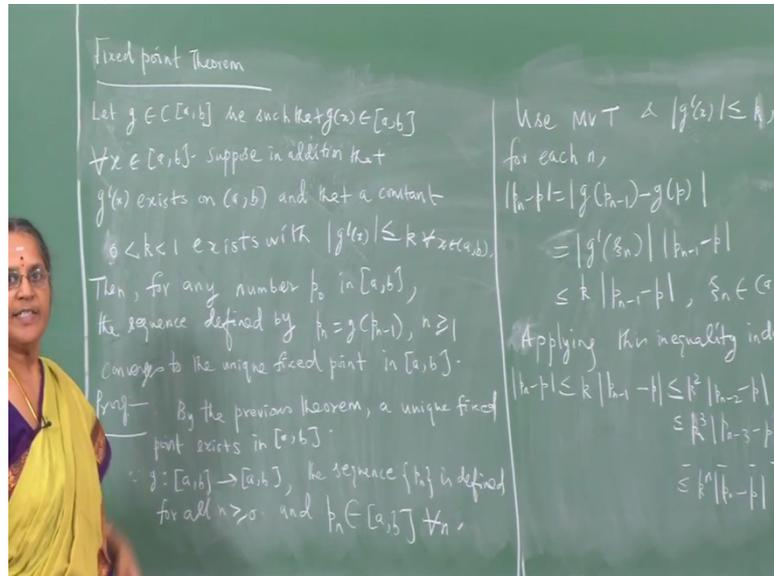 Fixed point Theorem
Let g ∈ C[a,b] be such that g(x) ∈ [a,b]
∀x ∈ [a,b]. Suppose in addition that
g'(x) exists on (a,b) and that a constant
0 < k < 1 exists with |g'(x)| ≤ k ∀ x∈(a,b).
Then, for any number p₀ in [a,b],
the sequence defined by pₙ = g(pₙ₋₁), n ≥ 1
converges to the unique fixed point in [a,b].
Proof By the previous theorem, a unique fixed
point exists in [a,b].
∵ g : [a,b] → [a,b], the sequence {pₙ} is defined
for all n ≥ 0 and pₙ ∈ [a,b] ∀n.
Use MVT & |g'(x)| ≤ k,
for each n,
|pₙ-p| = |g(pₙ₋₁) - g(p)|
= |g'(ξₙ)| |pₙ₋₁ - p|
≤ k |pₙ₋₁ - p|, ξₙ ∈ (a
Applying this inequality ind
|pₙ-p| ≤ k |pₙ₋₁ - p| ≤ k² |pₙ₋₂ - p|
≤ k³ |pₙ₋₃ - p
≤ kⁿ |pₙ - p|